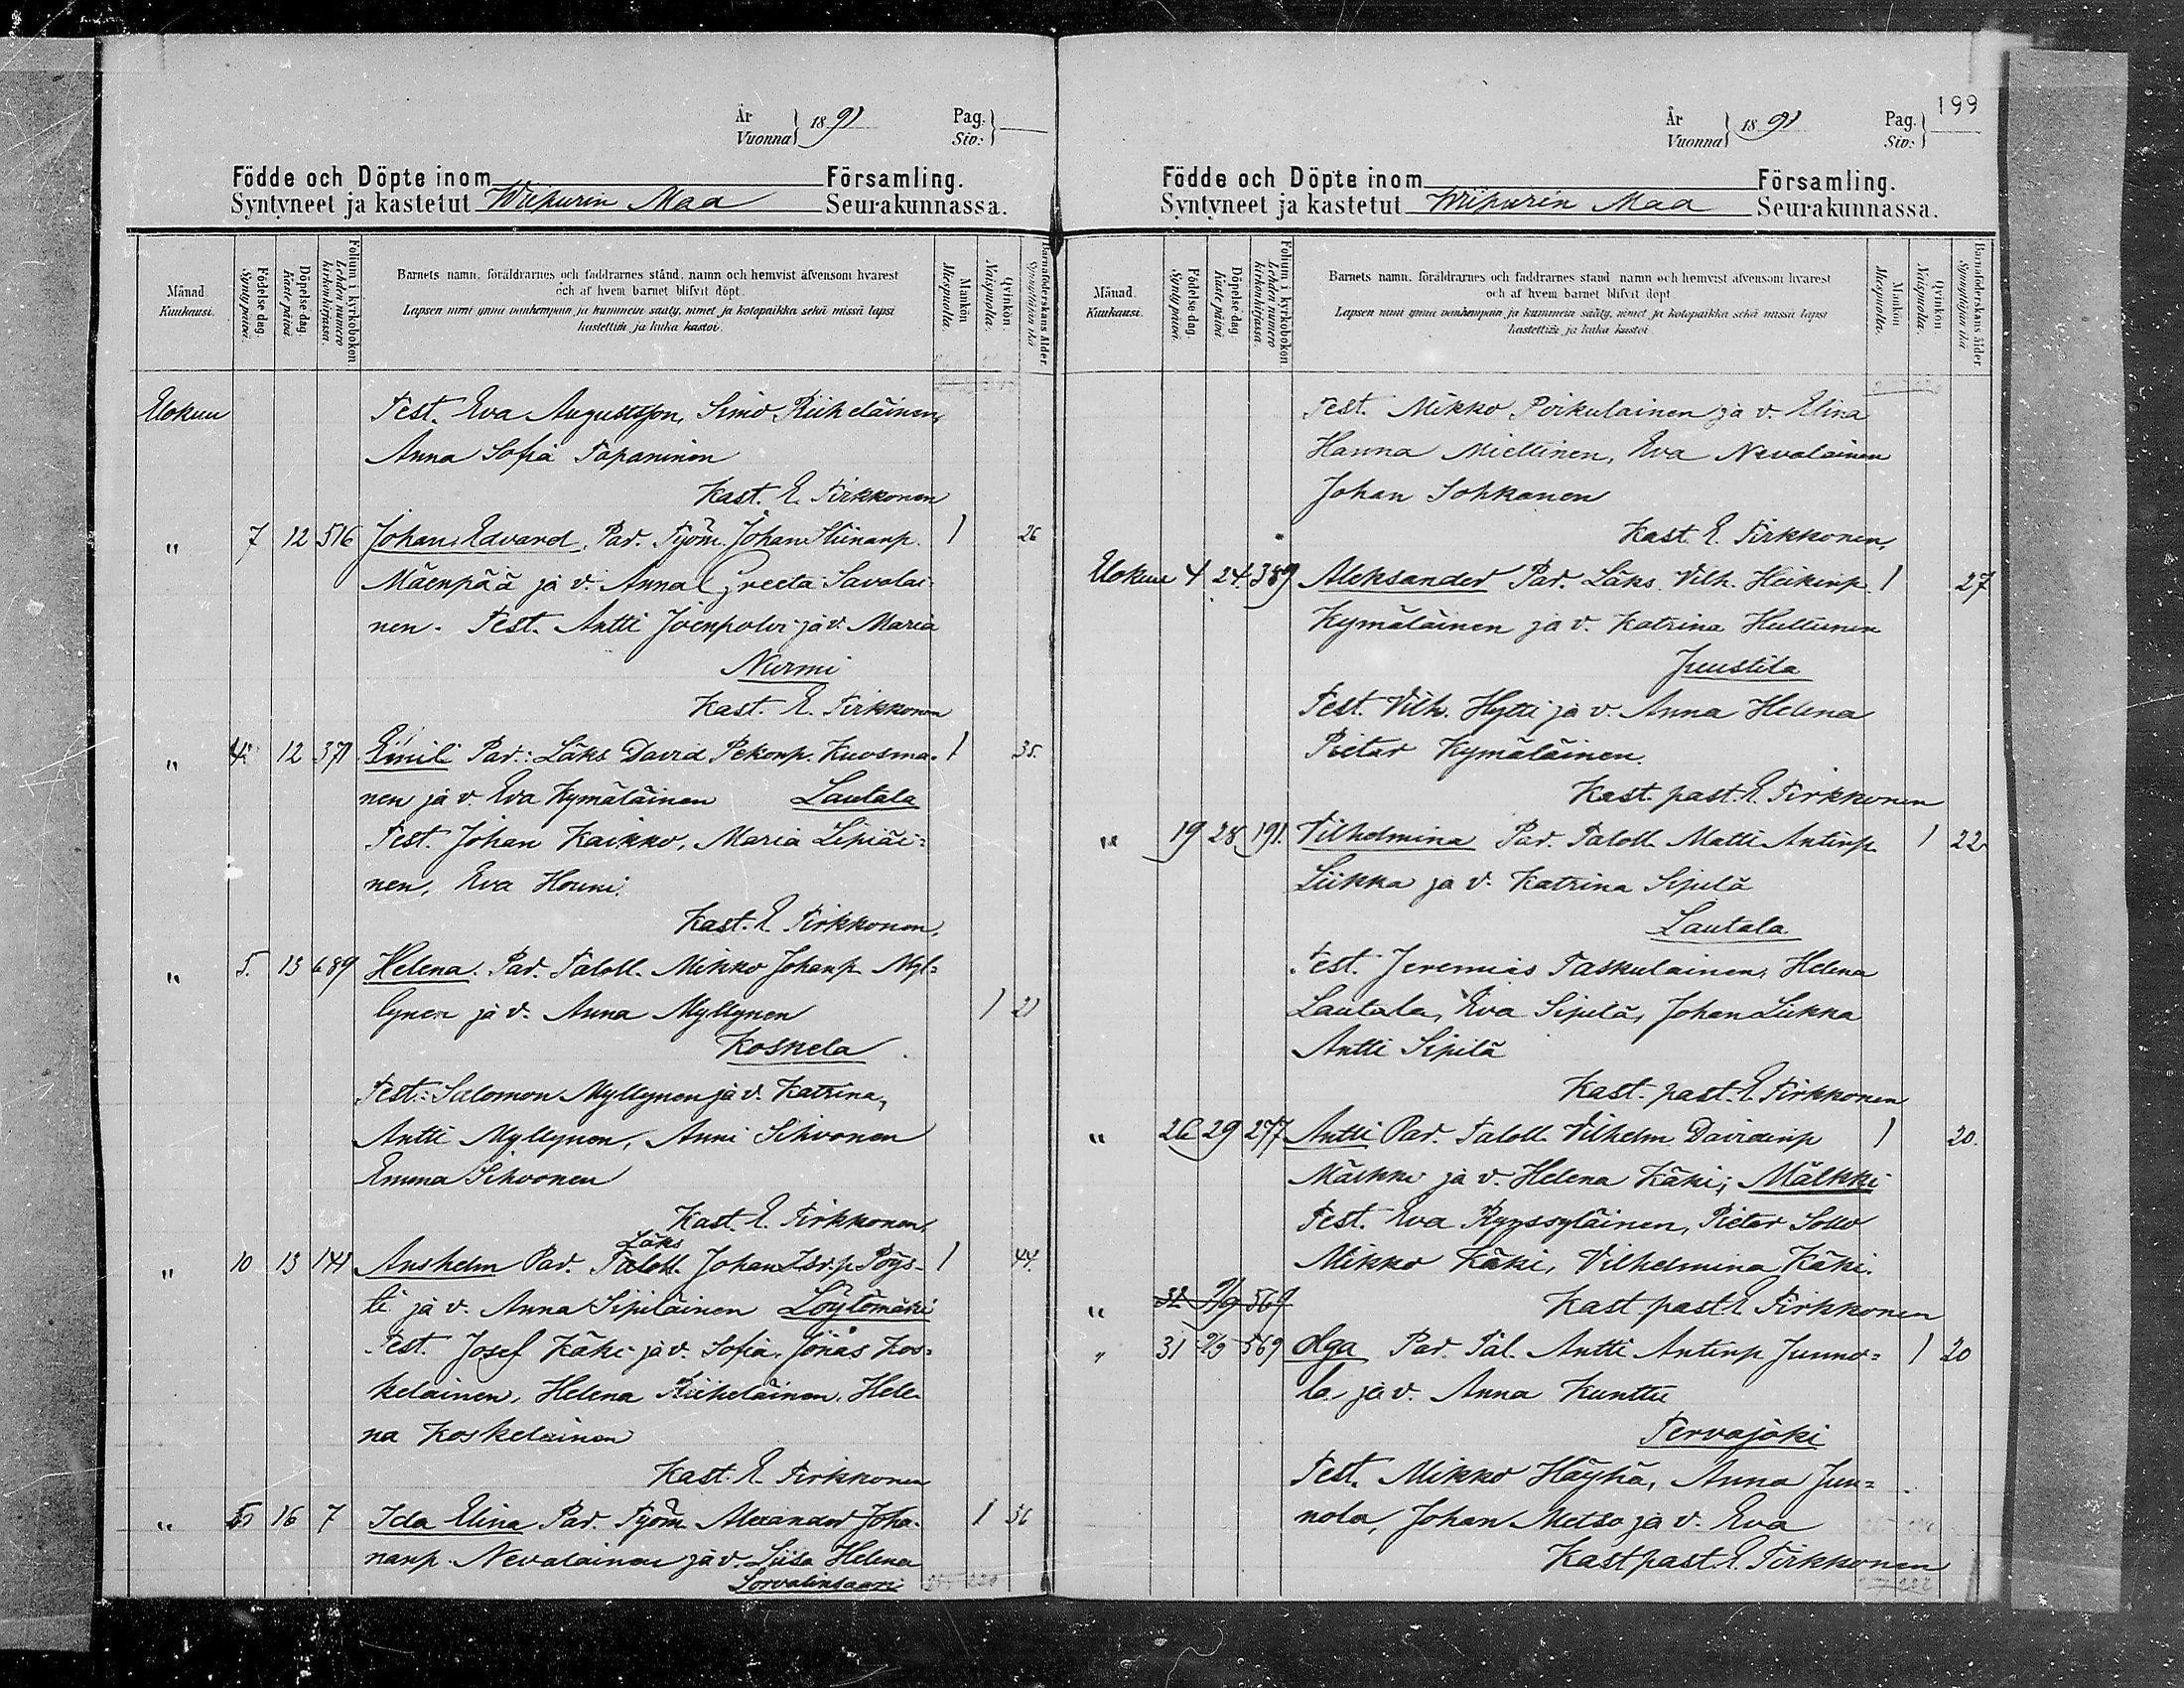 År
Vuonna 1891
Pag.
Siv:
Födde och Döpte inom Församling.
Syntyneet ja kastetut Wiipurin Maa Seurakunnassa.
Månad.
Kuukausi.
Födelse dag.
Syntypäivä.
Döpelse dag.
Kaste päivä.
Folium i kyrkobokon.
Lehden numero
kirkonkirjassa.
Barnets namn, föräldrarnes och faddrarnes stånd, namn och hemvist äfvensom hvarest
och af hvem barnet blifvit döpt.
Lapsen nimi ynnä vanhempain ja kummein sääty, nimet ja kotopaikka sekä missä lapsi
kastettiin ja kuka kastoi.
Mankön
Miespuolia.
Qvinkön
Naispuolia.
Barnaföderskans ålder.
Synnyttäjän ikä
Elokuu Test. Eva Augustsson, Simo Riiheläinen,
Anna Sofia Tapaninen
Kast. E. Tirkkonen
" 7 12 516 Johan Edvard, Par. Työm. Johan Stiinanp. 1 26
Mäenpää ja v. Anna Greeta Savolai-
nen. Test. Antti Joenpolvi ja v. Maria
Nurmi
Kast. E. Tirkkonen
" 4 12 371 Emil Par.: Läks David Pekonp. Kuosma- 1 35.
nen ja v. Eva Kymäläinen Lautala
Test. Johan Kaikko, Maria Lipiäi=
nen, Eva Houni.
Kast. E. Tirkkonen.
" 5. 13 689 Helena. Par. Taloll. Mikko Johanp. Myl=
lynen ja v. Anna Myllynen 1 21
Koskela
Test.: Salomon Myllynen ja v. Katrina,
Antti Myllynen, Anni Sihvonen
Emma Sihvonen
Kast. E. Tirkkonen,
Läks
" 10 13 141 Anshelm Par. Taloll. Johan Isr.p. Pöys- 1 44.
ti ja v. Anna Sipiläinen Löytömäki
Test. Josef Käki ja v. Sofia, Jonas Kos=
kelainen, Helena Riiheläinen, Hele-
na Koskelainen
Kast. E. Tirkkonen
" 16 7 Ida Elina Par. Työm. Alexander Joha- 1 36
nanp. Nevalainen ja v. Liisa Helena
Sorvalinsaari
199
År
Vuonna 1891
Pag.
Siv:
Födde och Döpte inom Församling.
Syntyneet ja kastetut Wiipurin Maa Seurakunnassa.
Månad.
Kuukausi.
Födelse dag.
Syntypäivä.
Döpelse dag.
Kaste päivä
Folium i kyrkobokon
Lehden numero
kirkonkirjassa.
Barnets namn, föräldrarnes och faddrarnes stånd namn och hemvist äfvensom hvarest
och af hvem barnet blifvit döpt.
Lapsen nimi ynnä vanhempain ja kummein sääty, nimet ja kotopaikka sekä missä lapsi
kastettiin ja kuka kastoi.
Mankön
Miespuolia.
Qvinkön
Naispuolia.
Barnaföderskans ålder
Synnyttäjän ikä
Test. Mikko Poikulainen ja v. Elina
Hanna Miettinen, Eva Nevalainen
Johan Sohkanen
Kast. E. Tirkkonen,
Elokuu 4 24 389 Aleksander Par. Läks. Vilh. Heikinp. 1 27
Kymäläinen ja v. Katrina Huttunen
Juustila
Test. Vilh. Hytti ja v. Anna Helena
Pietar Kymäläinen.
Kast. past. E. Tirkkonen
" 19 28 191. Vilhelmina Par. Taloll. Matti Antinp. 1 22
Liikka ja v. Katrina Sipilä
Lautala
Test. Jeremias Taskulainen, Helena
Lautala, Eva Sipilä, Johan Liikka
Antti Sipilä
Kast. past. E. Tirkkonen
" 26 29 277 Antti Par. Taloll. Vilhelm Davidinp 1 20.
Mälkki ja v. Helena Käki; Mälkki
Test. Eva Ryyssyläinen, Pietar Sollo
Mikko Käki, Vilhelmina Käki.
" 569 Kast past. E Tirkkonen
" 31 2/9 569 Olga Par. Tal. Antti Antinp Junno= 1 20
la ja v. Anna Kunttu
Tervajoki
Test. Mikko Häyhä, Anna Jun=
nola, Johan Metso ja v. Eva
Kast past. E. Tirkkonen